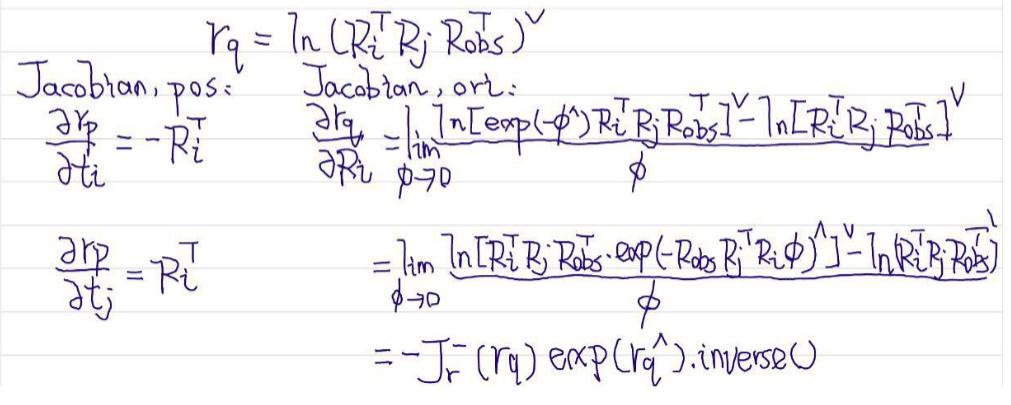 r_q = ln (R_i^T R_j R_obs^T)^∨
Jacobian, pos: Jacobian, ori:
∂r_p/∂t_i = -R_i^T ∂r_q/∂R_i = lim_{ϕ→0} (ln[exp(-ϕ^) R_i^T R_j R_obs^T]^∨ - ln[R_i^T R_j R_obs^T]^∨)/ϕ
∂r_p/∂t_j = R_i^T = lim_{ϕ→0} (ln[R_i^T R_j R_obs^T · exp(-R_obs R_j^T R_i ϕ)^]^∨ - ln(R_i^T R_j R_obs^T)^∨)/ϕ
= -J_r^-(r_q) exp(r_q^).inverse()